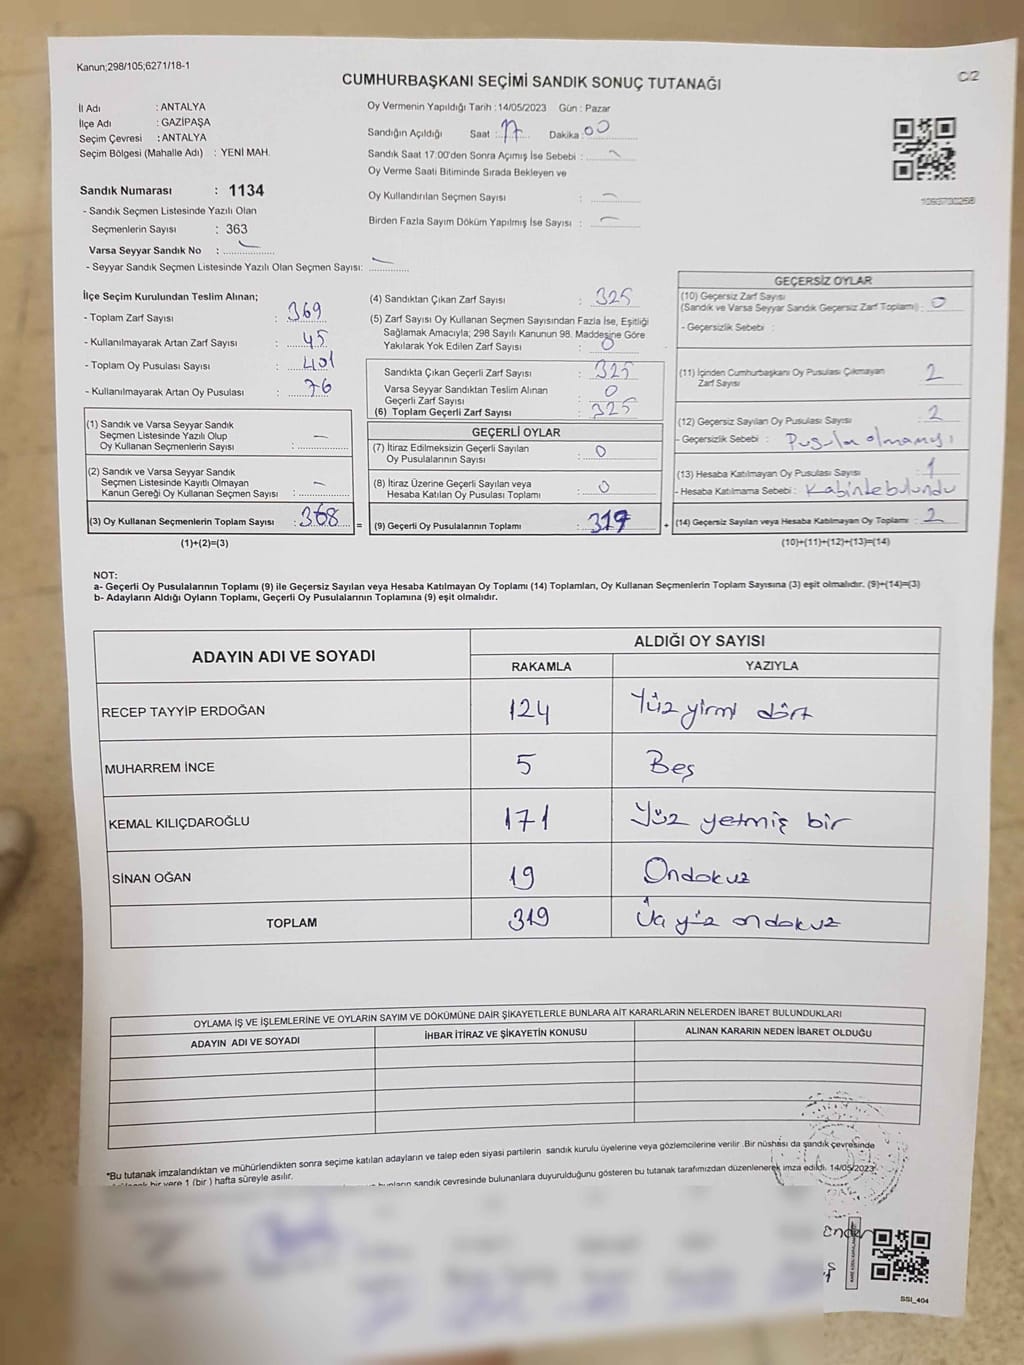 Kanun;298/105;6271/18-1
C/2
CUMHURBAŞKANI SEÇİMİ SANDIK SONUÇ TUTANAĞI
İl Adı : ANTALYA
İlçe Adı : GAZİPAŞA
Seçim Çevresi : ANTALYA
Seçim Bölgesi (Mahalle Adı) : YENİ MAH.
Oy Vermenin Yapıldığı Tarih :14/05/2023 Gün : Pazar
Sandığın Açıldığı Saat : 17 Dakika : 00
Sandık Saat 17:00'den Sonra Açımış İse Sebebi :
Oy Verme Saati Bitiminde Sırada Bekleyen ve
Oy Kullandırılan Seçmen Sayısı :
Birden Fazla Sayım Döküm Yapılmış İse Sayısı :
Sandık Numarası : 1134
- Sandık Seçmen Listesinde Yazılı Olan
Seçmenlerin Sayısı : 363
Varsa Seyyar Sandık No :
- Seyyar Sandık Seçmen Listesinde Yazılı Olan Seçmen Sayısı:
İlçe Seçim Kurulundan Teslim Alınan;
- Toplam Zarf Sayısı : 369
- Kullanılmayarak Artan Zarf Sayısı : 45
- Toplam Oy Pusulası Sayısı : 401
- Kullanılmayarak Artan Oy Pusulası : 76
(1) Sandık ve Varsa Seyyar Sandık
Seçmen Listesinde Yazılı Olup
Oy Kullanan Seçmenlerin Sayısı : —
(2) Sandık ve Varsa Seyyar Sandık
Seçmen Listesinde Kayıtlı Olmayan
Kanun Gereği Oy Kullanan Seçmen Sayısı : —
(3) Oy Kullanan Seçmenlerin Toplam Sayısı : 368 =
(1)+(2)=(3)
(4) Sandıktan Çıkan Zarf Sayısı : 325
(5) Zarf Sayısı Oy Kullanan Seçmen Sayısından Fazla İse, Eşitliği
Sağlamak Amacıyla; 298 Sayılı Kanunun 98. Maddesine Göre
Yakılarak Yok Edilen Zarf Sayısı : 0
Sandıkta Çıkan Geçerli Zarf Sayısı : 325
Varsa Seyyar Sandıktan Teslim Alınan
Geçerli Zarf Sayısı : 0
(6) Toplam Geçerli Zarf Sayısı : 325
GEÇERLİ OYLAR
(7) İtiraz Edilmeksizin Geçerli Sayılan
Oy Pusulalarının Sayısı : 0
(8) İtiraz Üzerine Geçerli Sayılan veya
Hesaba Katılan Oy Pusulası Toplamı : 0
(9) Geçerli Oy Pusulalarının Toplamı : 319 +
GEÇERSİZ OYLAR
(10) Geçersiz Zarf Sayısı
(Sandık ve Varsa Seyyar Sandık Geçersiz Zarf Toplamı) : 0
- Geçersizlik Sebebi :
(11) İçinden Cumhurbaşkanı Oy Pusulası Çıkmayan
Zarf Sayısı : 2
(12) Geçersiz Sayılan Oy Pusulası Sayısı : 2
- Geçersizlik Sebebi : Pusula olmamışı
(13) Hesaba Katılmayan Oy Pusulası Sayısı : 1
- Hesaba Katılmama Sebebi : Kabinde bulundu
(14) Geçersiz Sayılan veya Hesaba Katılmayan Oy Toplamı : 2
(10)+(11)+(12)+(13)=(14)
NOT:
a- Geçerli Oy Pusulalarının Toplamı (9) ile Geçersiz Sayılan veya Hesaba Katılmayan Oy Toplamı (14) Toplamları, Oy Kullanan Seçmenlerin Toplam Sayısına (3) eşit olmalıdır. (9)+(14)=(3)
b- Adayların Aldığı Oyların Toplamı, Geçerli Oy Pusulalarının Toplamına (9) eşit olmalıdır.
ADAYIN ADI VE SOYADI
ALDIĞI OY SAYISI
RAKAMLA YAZIYLA
RECEP TAYYİP ERDOĞAN 124 Yüz yirmi dört
MUHARREM İNCE 5 Beş
KEMAL KILIÇDAROĞLU 171 Yüz yetmiş bir
SİNAN OĞAN 19 Ondokuz
TOPLAM 319 Üç yüz ondokuz
OYLAMA İŞ VE İŞLEMLERİNE VE OYLARIN SAYIM VE DÖKÜMÜNE DAİR ŞİKAYETLERLE BUNLARA AİT KARARLARIN NELERDEN İBARET BULUNDUKLARI
ADAYIN ADI VE SOYADI İHBAR İTİRAZ VE ŞİKAYETİN KONUSU ALINAN KARARIN NEDEN İBARET OLDUĞU
*Bu tutanak imzalandıktan ve mühürlendikten sonra seçime katılan adayların ve talep eden siyasi partilerin sandık kurulu üyelerine veya gözlemcilerine verilir .Bir nüshası da sandık çevresinde
bir yere 1 (bir ) hafta süreyle asılır.
bunların sandık çevresinde bulunanlara duyurulduğunu gösteren bu tutanak tarafımızdan düzenlenerek imza edildi. 14/05/2023
Ender
SSI_404